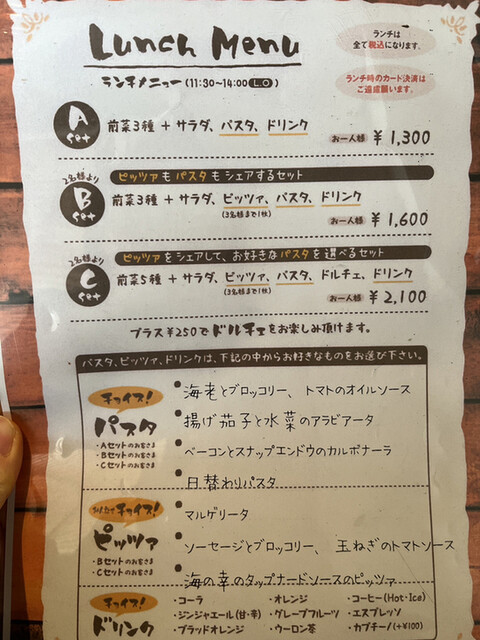 Lunch Menu
ランチは
全て税込になります。
ランチ時のカード決済は
ご遠慮願います。
ランチメニュー(11:30~14:00 L.O)
A set
前菜3種 + サラダ、パスタ、ドリンク
お一人様 ¥1,300
2名様より
B set
ピッツァもパスタもシェアするセット
前菜3種 + サラダ、ピッツァ、パスタ、ドリンク
(3名様まで1枚)
お一人様 ¥1,600
2名様より
C set
ピッツァをシェアして、お好きなパスタを選べるセット
前菜5種 + サラダ、ピッツァ、パスタ、ドルチェ、ドリンク
(3名様まで1枚)
お一人様 ¥2,100
プラス¥250でドルチェをお楽しみ頂けます。
パスタ、ピッツァ、ドリンクは、下記の中からお好きなものをお選び下さい。
チョイス!
パスタ
・Aセットのお客さま
・Bセットのお客さま
・Cセットのお客さま
・海老とブロッコリー、トマトのオイルソース
・揚げ茄子と水菜のアラビアータ
・ベーコンとスナップエンドウのカルボナーラ
・日替わりパスタ
チョイス!
ピッツァ
・Bセットのお客さま
・Cセットのお客さま
・マルゲリータ
・ソーセージとブロッコリー、玉ねぎのトマトソース
・海の幸のタップナードソースのピッツァ
チョイス!
ドリンク
・コーラ ・オレンジ ・コーヒー(Hot・Ice)
・ジンジャエール(甘・辛) ・グレープフルーツ ・エスプレッソ
・ブラッドオレンジ ・ウーロン茶 ・カプチーノ(+¥100)